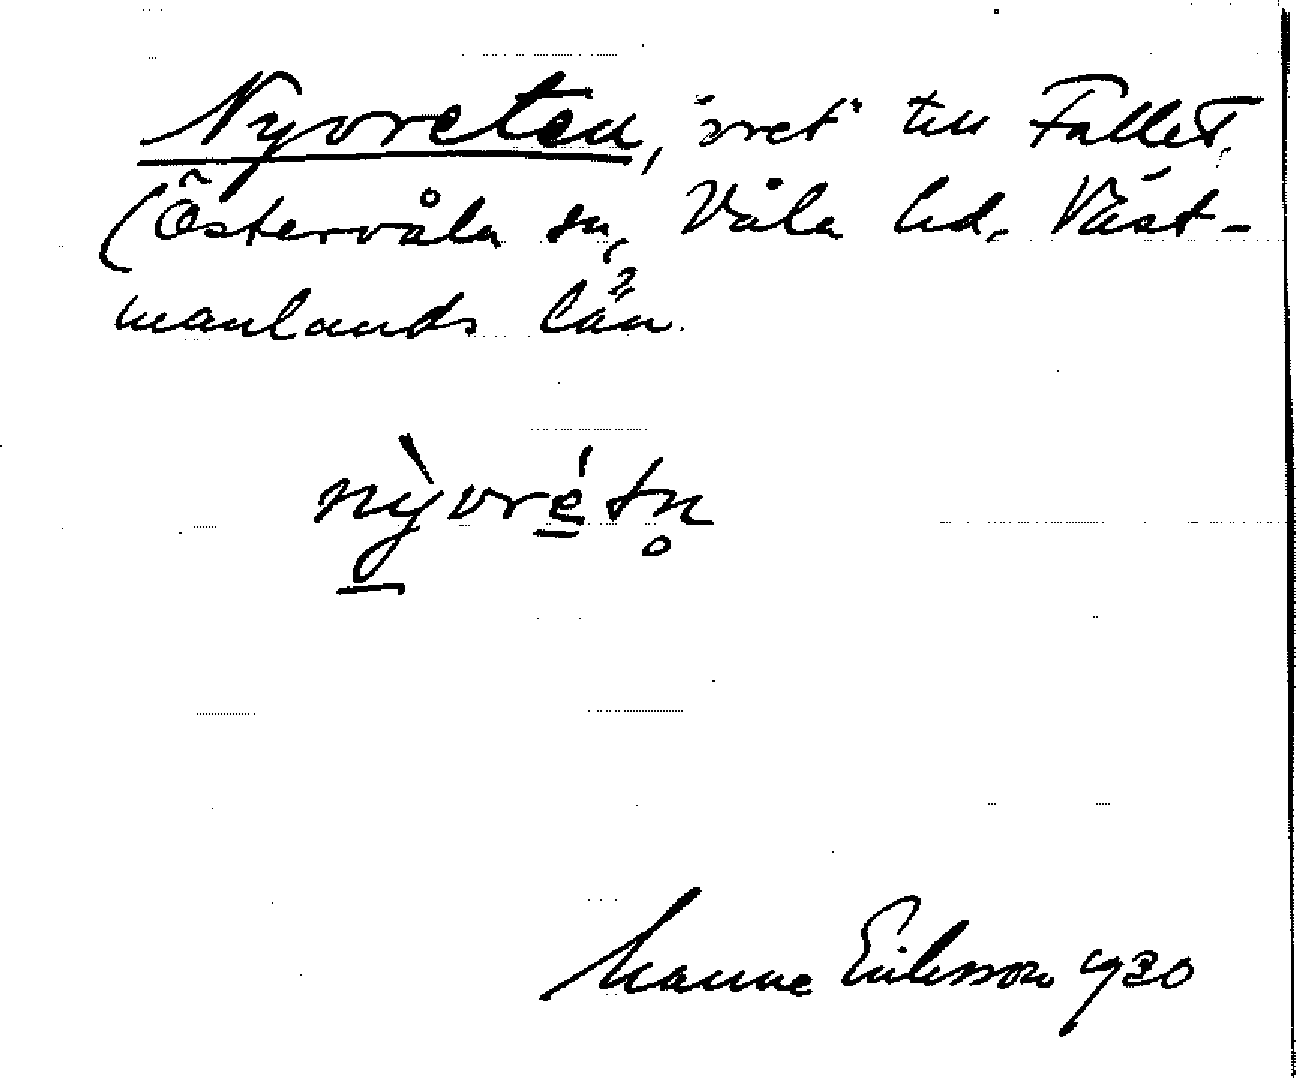 Nyvreten, "vret" till Fallet,
(Östervåla sn, Våla hd, Väst-
manlands län.
nỳvrétn̥
Manne Eriksson 1930